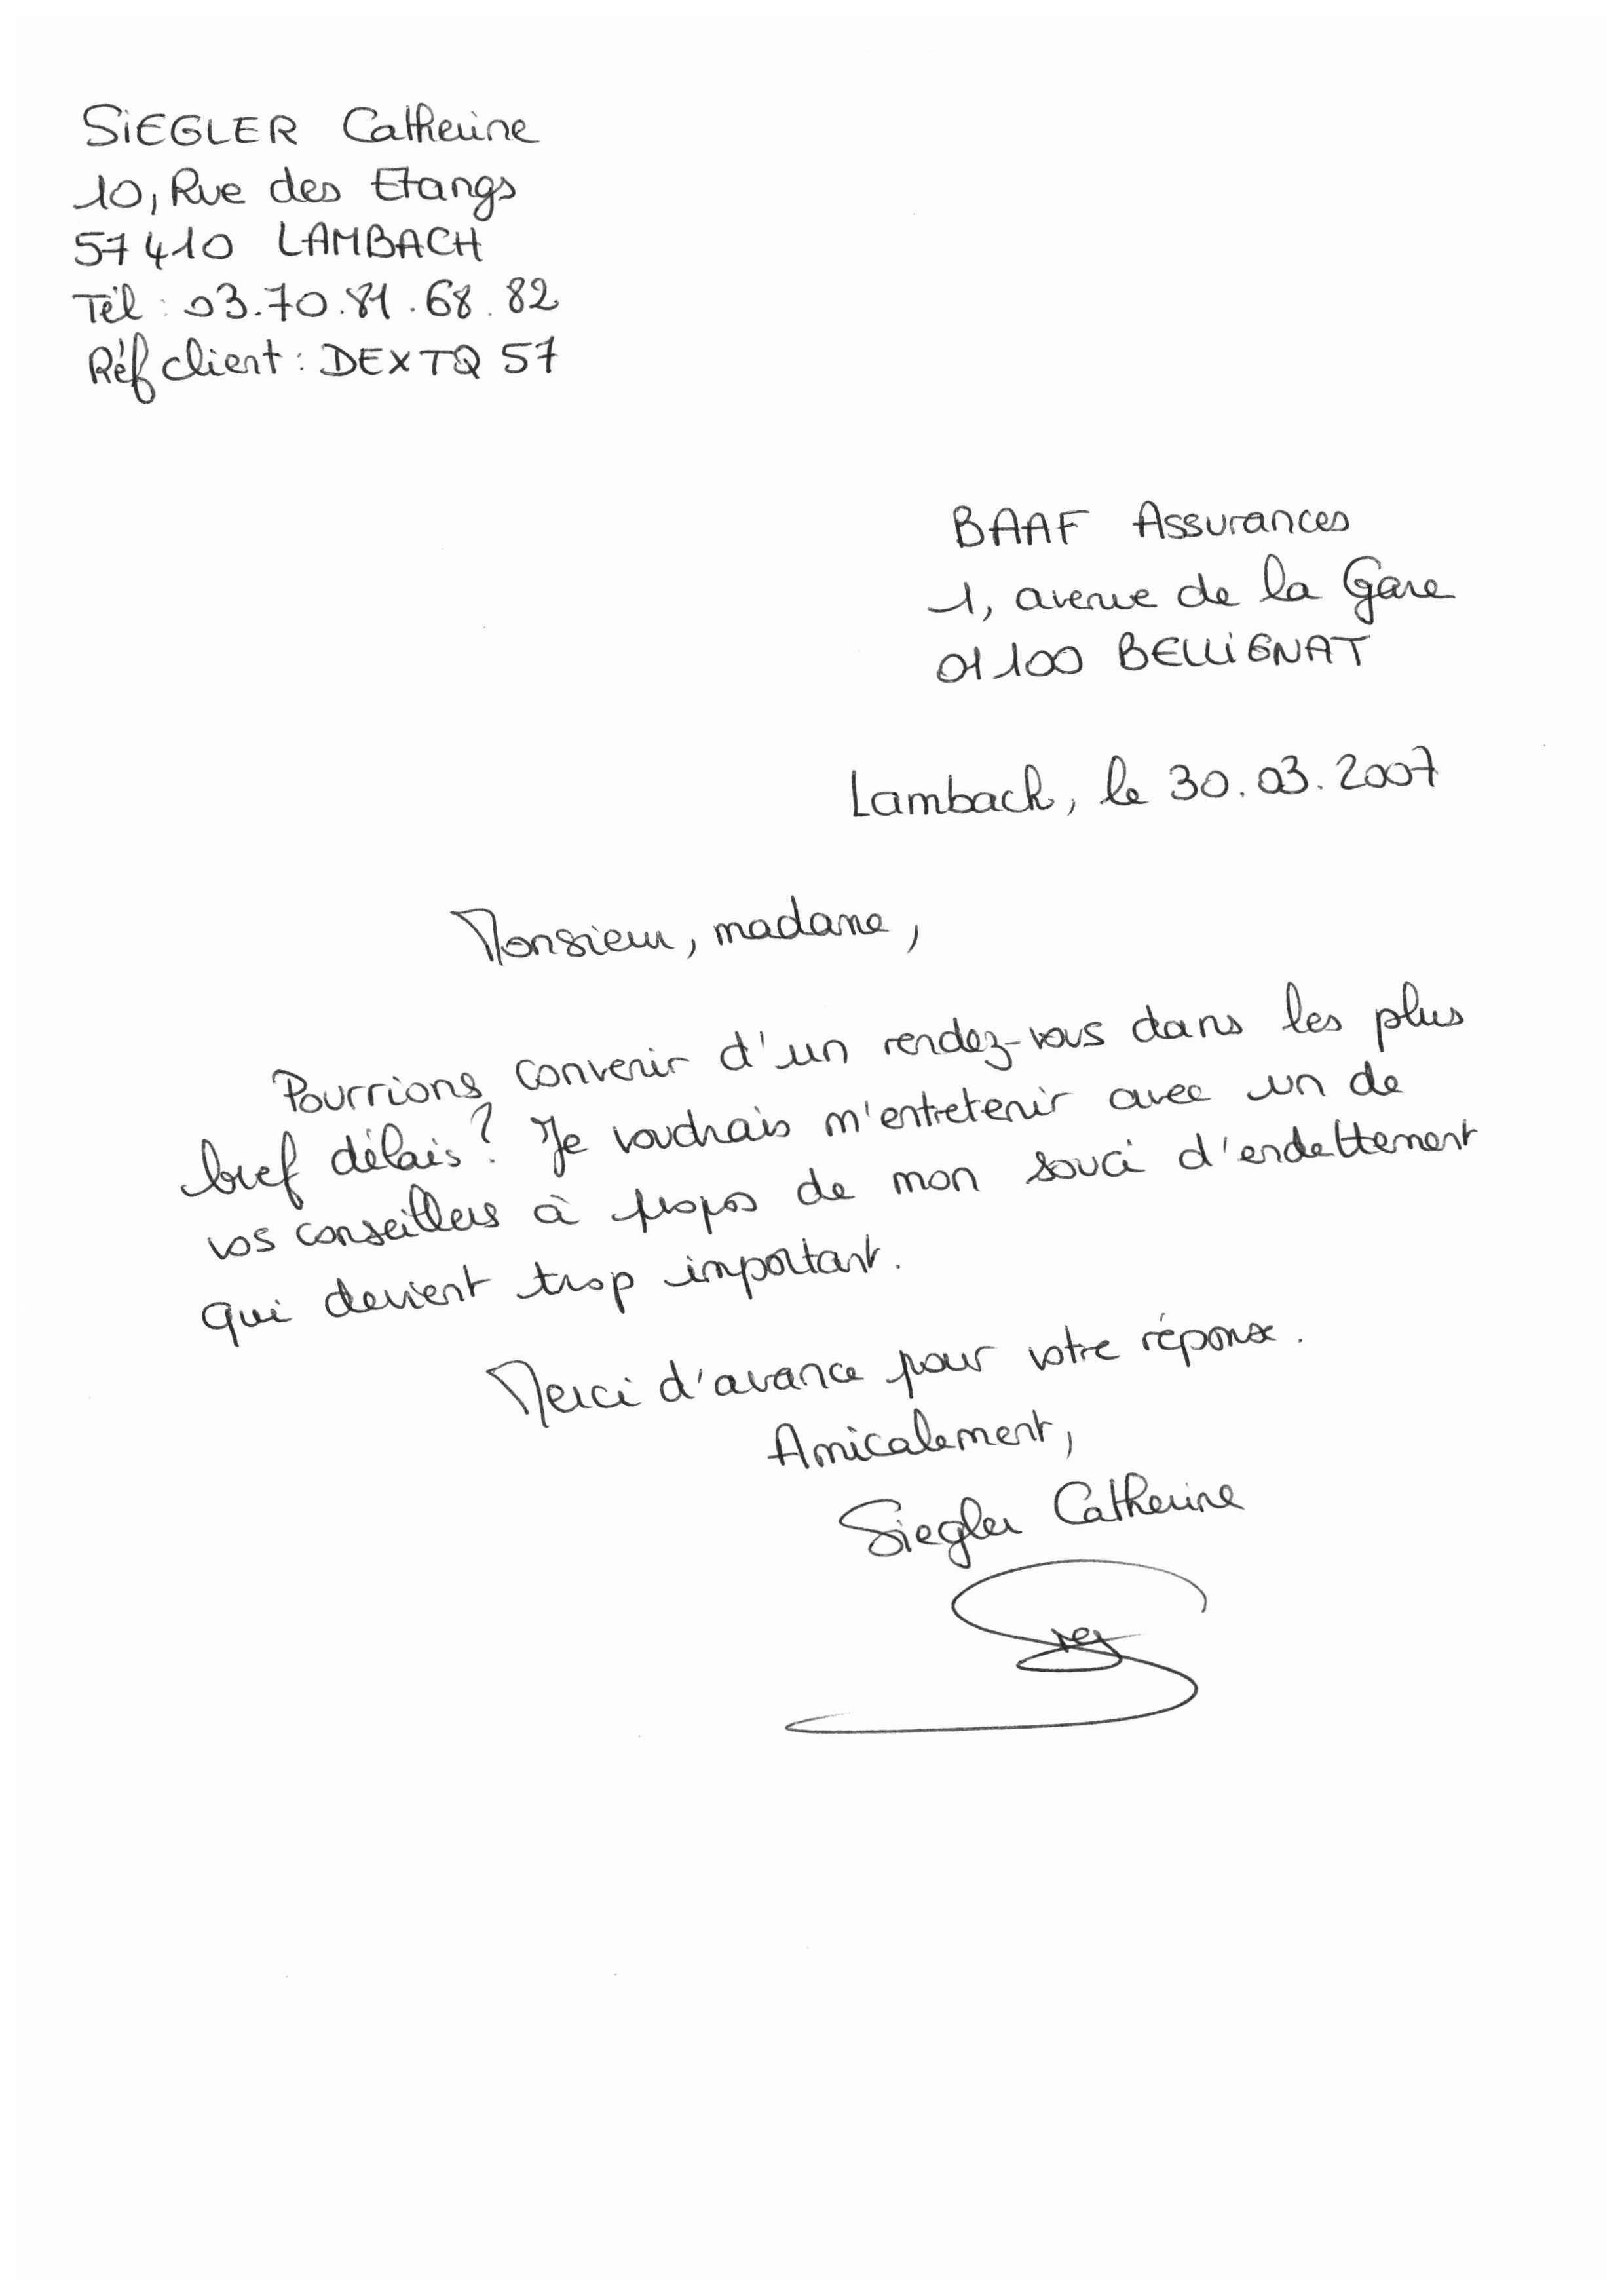 SIEGLER Catherine
10, Rue des Etangs
57410 LAMBACH
Tél : 03.70.81.68.82
Réf client : DEXTQ 57
BAAF Assurances
1, avenue de la Gare
01100 BELLIGNAT
Lambach, le 30.03.2007
Monsieur, madame,
Pourrions convenir d'un rendez-vous dans les plus
bref délais ? Je voudrais m'entretenir avec un de
vos conseillers à propos de mon souci d'endettement
qui devient trop important.
Merci d'avance pour votre réponse.
Amicalement,
Siegler Catherine